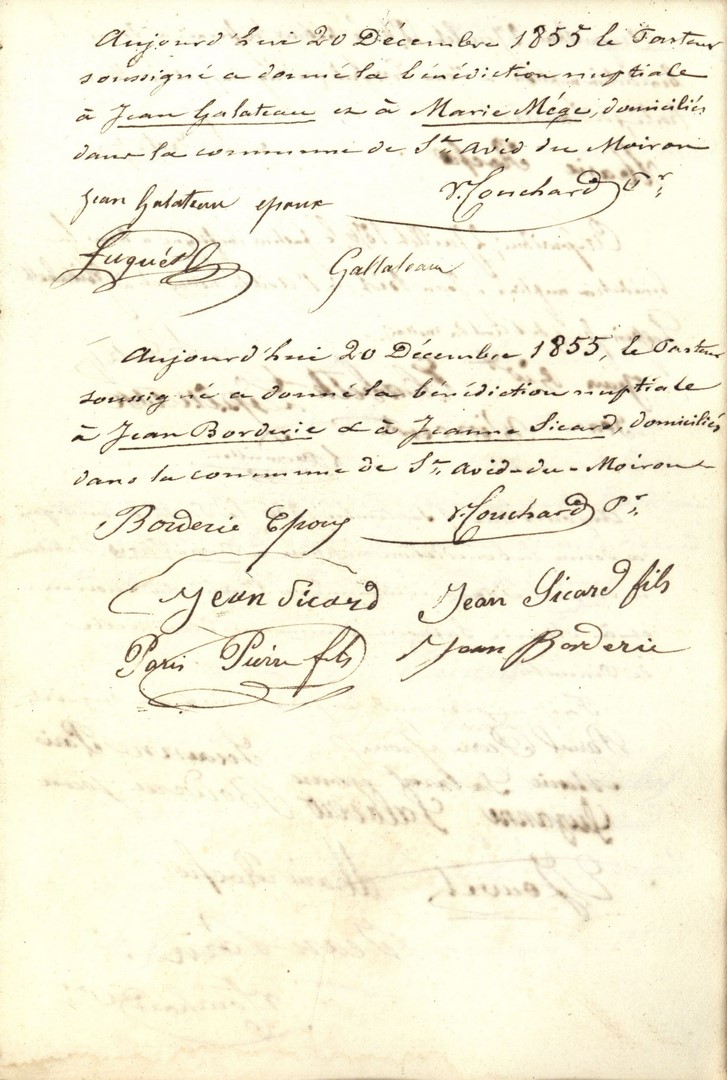 Aujourd'hui 20 Décembre 1855 le Pasteur
soussigné a donné la bénédiction nuptiale
à Jean Galateau et à Marie Mége, domiciliés
dans la commune de St. Avid du Moiron
Jean Galateau epoux V. Couchard Pr.
Fuquet Gallateau
Aujourd'hui 20 Décembre 1855, le Pasteur
soussigné a donné la bénédiction nuptiale
à Jean Borderie & à Jeanne Sicard, domiciliés
dans la commune de St. Avid-du-Moiron
Borderie Epoux V. Couchard Pr.
Jean Sicard Jean Sicard fils
Paris Pierre fils Jean Borderie